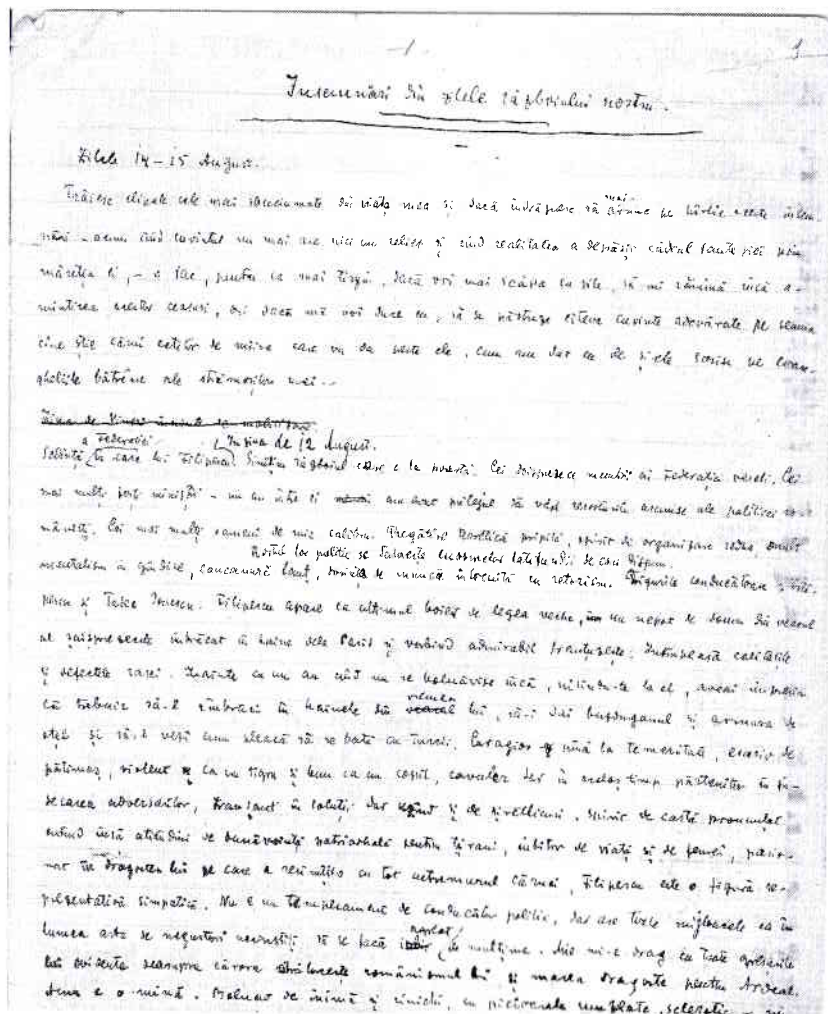 -1-
1
Insemnări din zilele războiului nostru.
Zilele 14-15 August.
Trăiesc clipele cele mai sbuciumate din viața mea și dacă îndrăsnesc să mai arunc pe hârtie aceste însem-
nări - acum când cuvântul nu mai are nici un relief și când realitatea a depășit cadrul fanteziei prin
măreția ei, - o fac, pentru ca mai târziu, dacă voi mai scăpa cu zile, să-mi rămână încă a-
mintirea acestor ceasuri, ori dacă mă voi duce eu, să se păstreze câteva cuvinte adevărate pe seama
cine știe cărui cetitor de mâine care va da peste ele, cum am dat eu de scrise pe evan-
gheliile bătrâne ale strămoșilor mei...
Însina de 12 August.
Ședință a Federației la care lui Filipescu. Simțim războiul care e la poartă. Cei doisprezece membri ai Federației vorbesc. Cei
mai mulți foști miniștri - nu au știut și am avut prilejul să văd resorturile ascunse ale politicei ro-
mânești. Cei mai mulți oameni de mic calibru. Pregătire teoretică pripită, spirit de organizare
Rostul lor politic se datorește enormelor latifundii de care dispun.
orientalism în gândire, munca înlocuită cu retorism. Figurile conducătoare: Fili-
pescu și Take Ionescu. Filipescu apare ca ultimul boier de legea veche, un nepot de domn din veacul
al șaisprezecelea îmbrăcat în haine dela Paris și vorbind admirabil franțuzește. Întrupează calitățile
și defectele rasei. Înainte cu un an când nu se bolnăvise încă, uitându-te la el, aveai impresia
că trebuie să-l îmbraci în hainele din vremea lui, să-i dai buzduganul și armura de
oțel și să-l vezi cum pleacă să se bată cu turcii. Curagios până la temeritate, de
pătimaș, violent ca un tigru și bun ca un copil, cavaler dar în acelaș timp părtinitor în ju-
decarea adversarilor, tranșant în soluții, dar și de șiretlicuri, spirit de castă pronunțat
având însă atitudini de bunăvoință patriarhală pentru țărani, iubitor de viață și de femei, pasio-
nat în dragostea lui pe care a resimțit-o cu tot cutremurul cărnii, Filipescu este o figură re-
prezentativă simpatică. Nu e un temperament de conducător politic, dar are toate mijloacele ca în
lumea asta de negustori să se facă de mulțime. Mie mi-e drag cu toate greșelile
lui evidente deasupra cărora strălucește românismul lui și marea dragoste pentru Ardeal.
Acum e o ruină. Bolnav de inimă și rinichi, cu picioarele umflate,